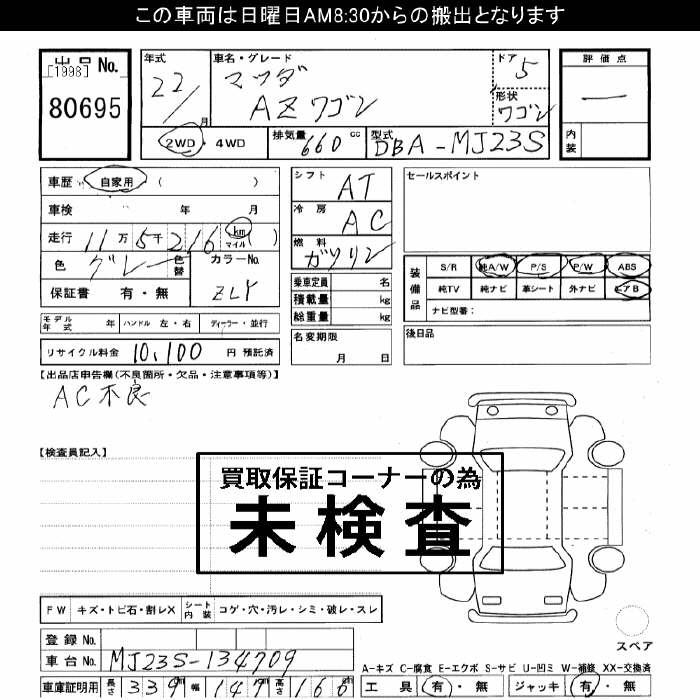 この車両は日曜日AM8:30からの搬出となります
出品 No.
[1998]
80695
年式
22/
月
車名・グレード
マツダ
AZワゴン
ドア
5
形状
ワゴン
評価点
—
内装
2WD・4WD
排気量
660
cc
型式
DBA-MJ23S
車歴 自家用 ( )
車検 年 月
走行 11万5千216 km マイル ( )
色 グレー 色替
カラーNo.
ZLY
保証書 有・無
シフト
AT
冷房
AC
燃料
ガソリン
乗車定員 名
積載量 kg
総重量 kg
セールスポイント
装備品
S/R 純A/W P/S P/W ABS
純TV 純ナビ 革シート 外ナビ エアB
ナビ型番:
モデル年式 年 ハンドル 左・右 ディーラー・並行
名変期限
月 日
後日品
リサイクル料金 10,100 円 預託済
【出品店申告欄(不良箇所・欠品・注意事項等)】
AC不良
【検査員記入】
買取保証コーナーの為
未検査
FW キズ・トビ石・割レX シート内装 コゲ・穴・汚レ・シミ・破レ・スレ
登録 No.
車台 No. MJ23S-134709
車庫証明用 長さ 339 cm 幅 147 cm 高さ 166 cm
スペア
A-キズ C-腐食 E-エクボ S-サビ U-凹ミ W-補修 XX-交換済
工具 有・無 ジャッキ 有・無